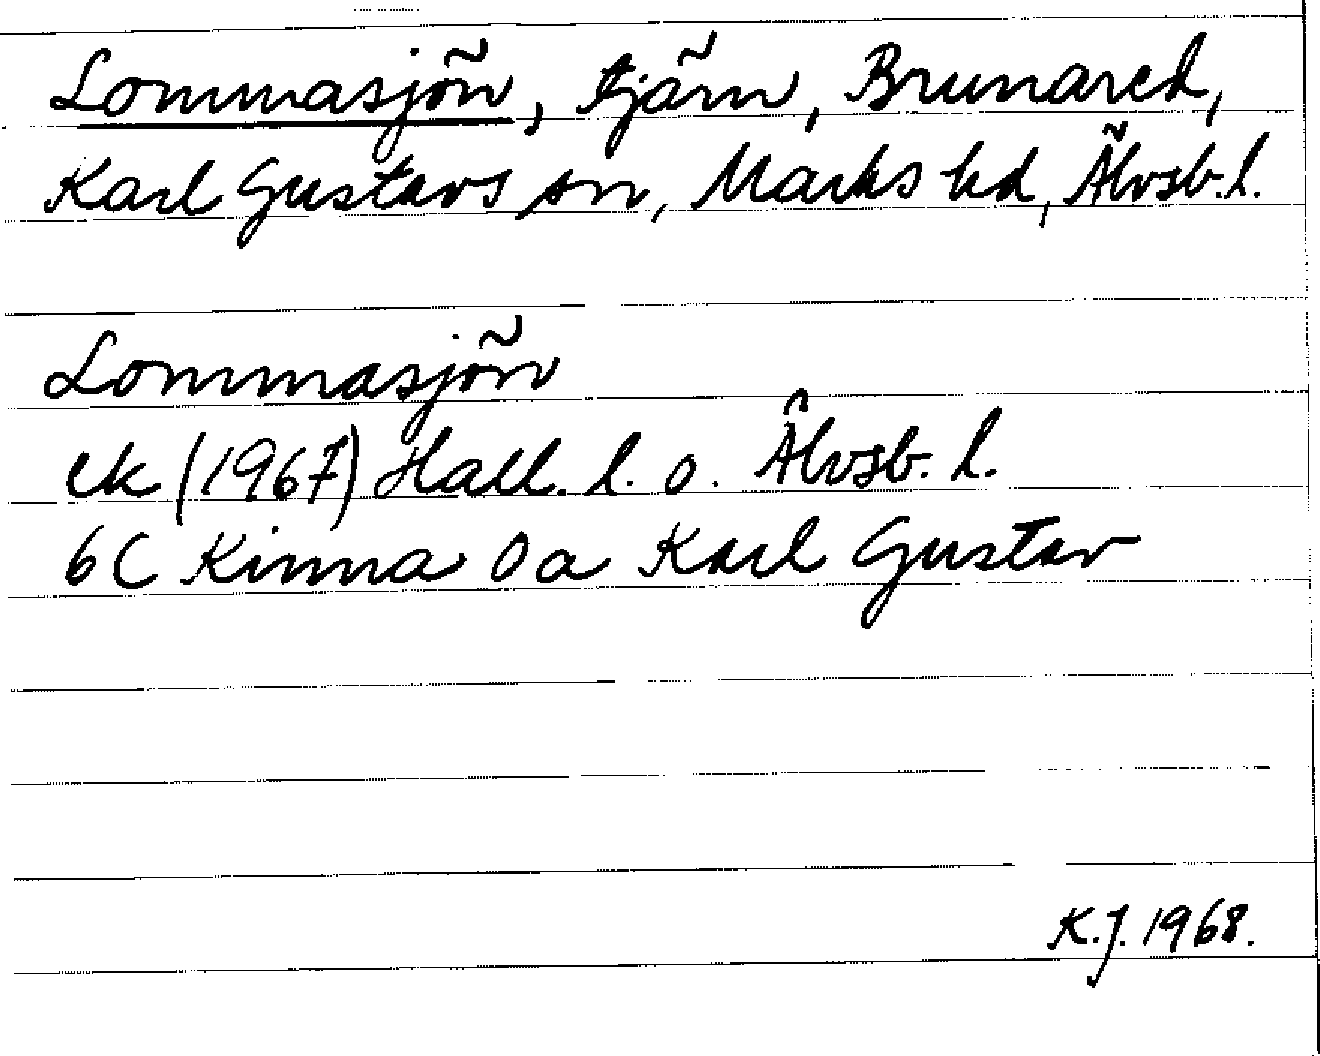 Lommasjön, tjärn, Brunared,
Karl Gustavs sn, Marks hd, Älvsb. l.
Lommasjön
ek (1967) Hall. l. o. Älvsb. l.
6C Kinna 0a Karl Gustav
K.J. 1968.